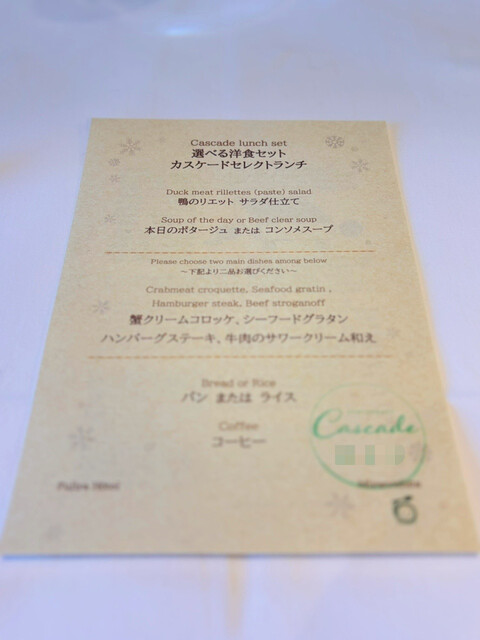 Cascade lunch set
選べる洋食セット
カスケードセレクトランチ
Duck meat rillettes (paste) salad
鴨のリエット サラダ仕立て
Soup of the day or Beef clear soup
本日のポタージュ または コンソメスープ
Please choose two main dishes among below
～下記より二品お選びください～
Crabmeat croquette, Seafood gratin ,
Hamburger steak, Beef stroganoff
蟹クリームコロッケ、シーフードグラタン
ハンバーグステーキ、牛肉のサワークリーム和え
Bread or Rice
パン または ライス
Coffee
コーヒー
Cascade
Fujiya Hotel